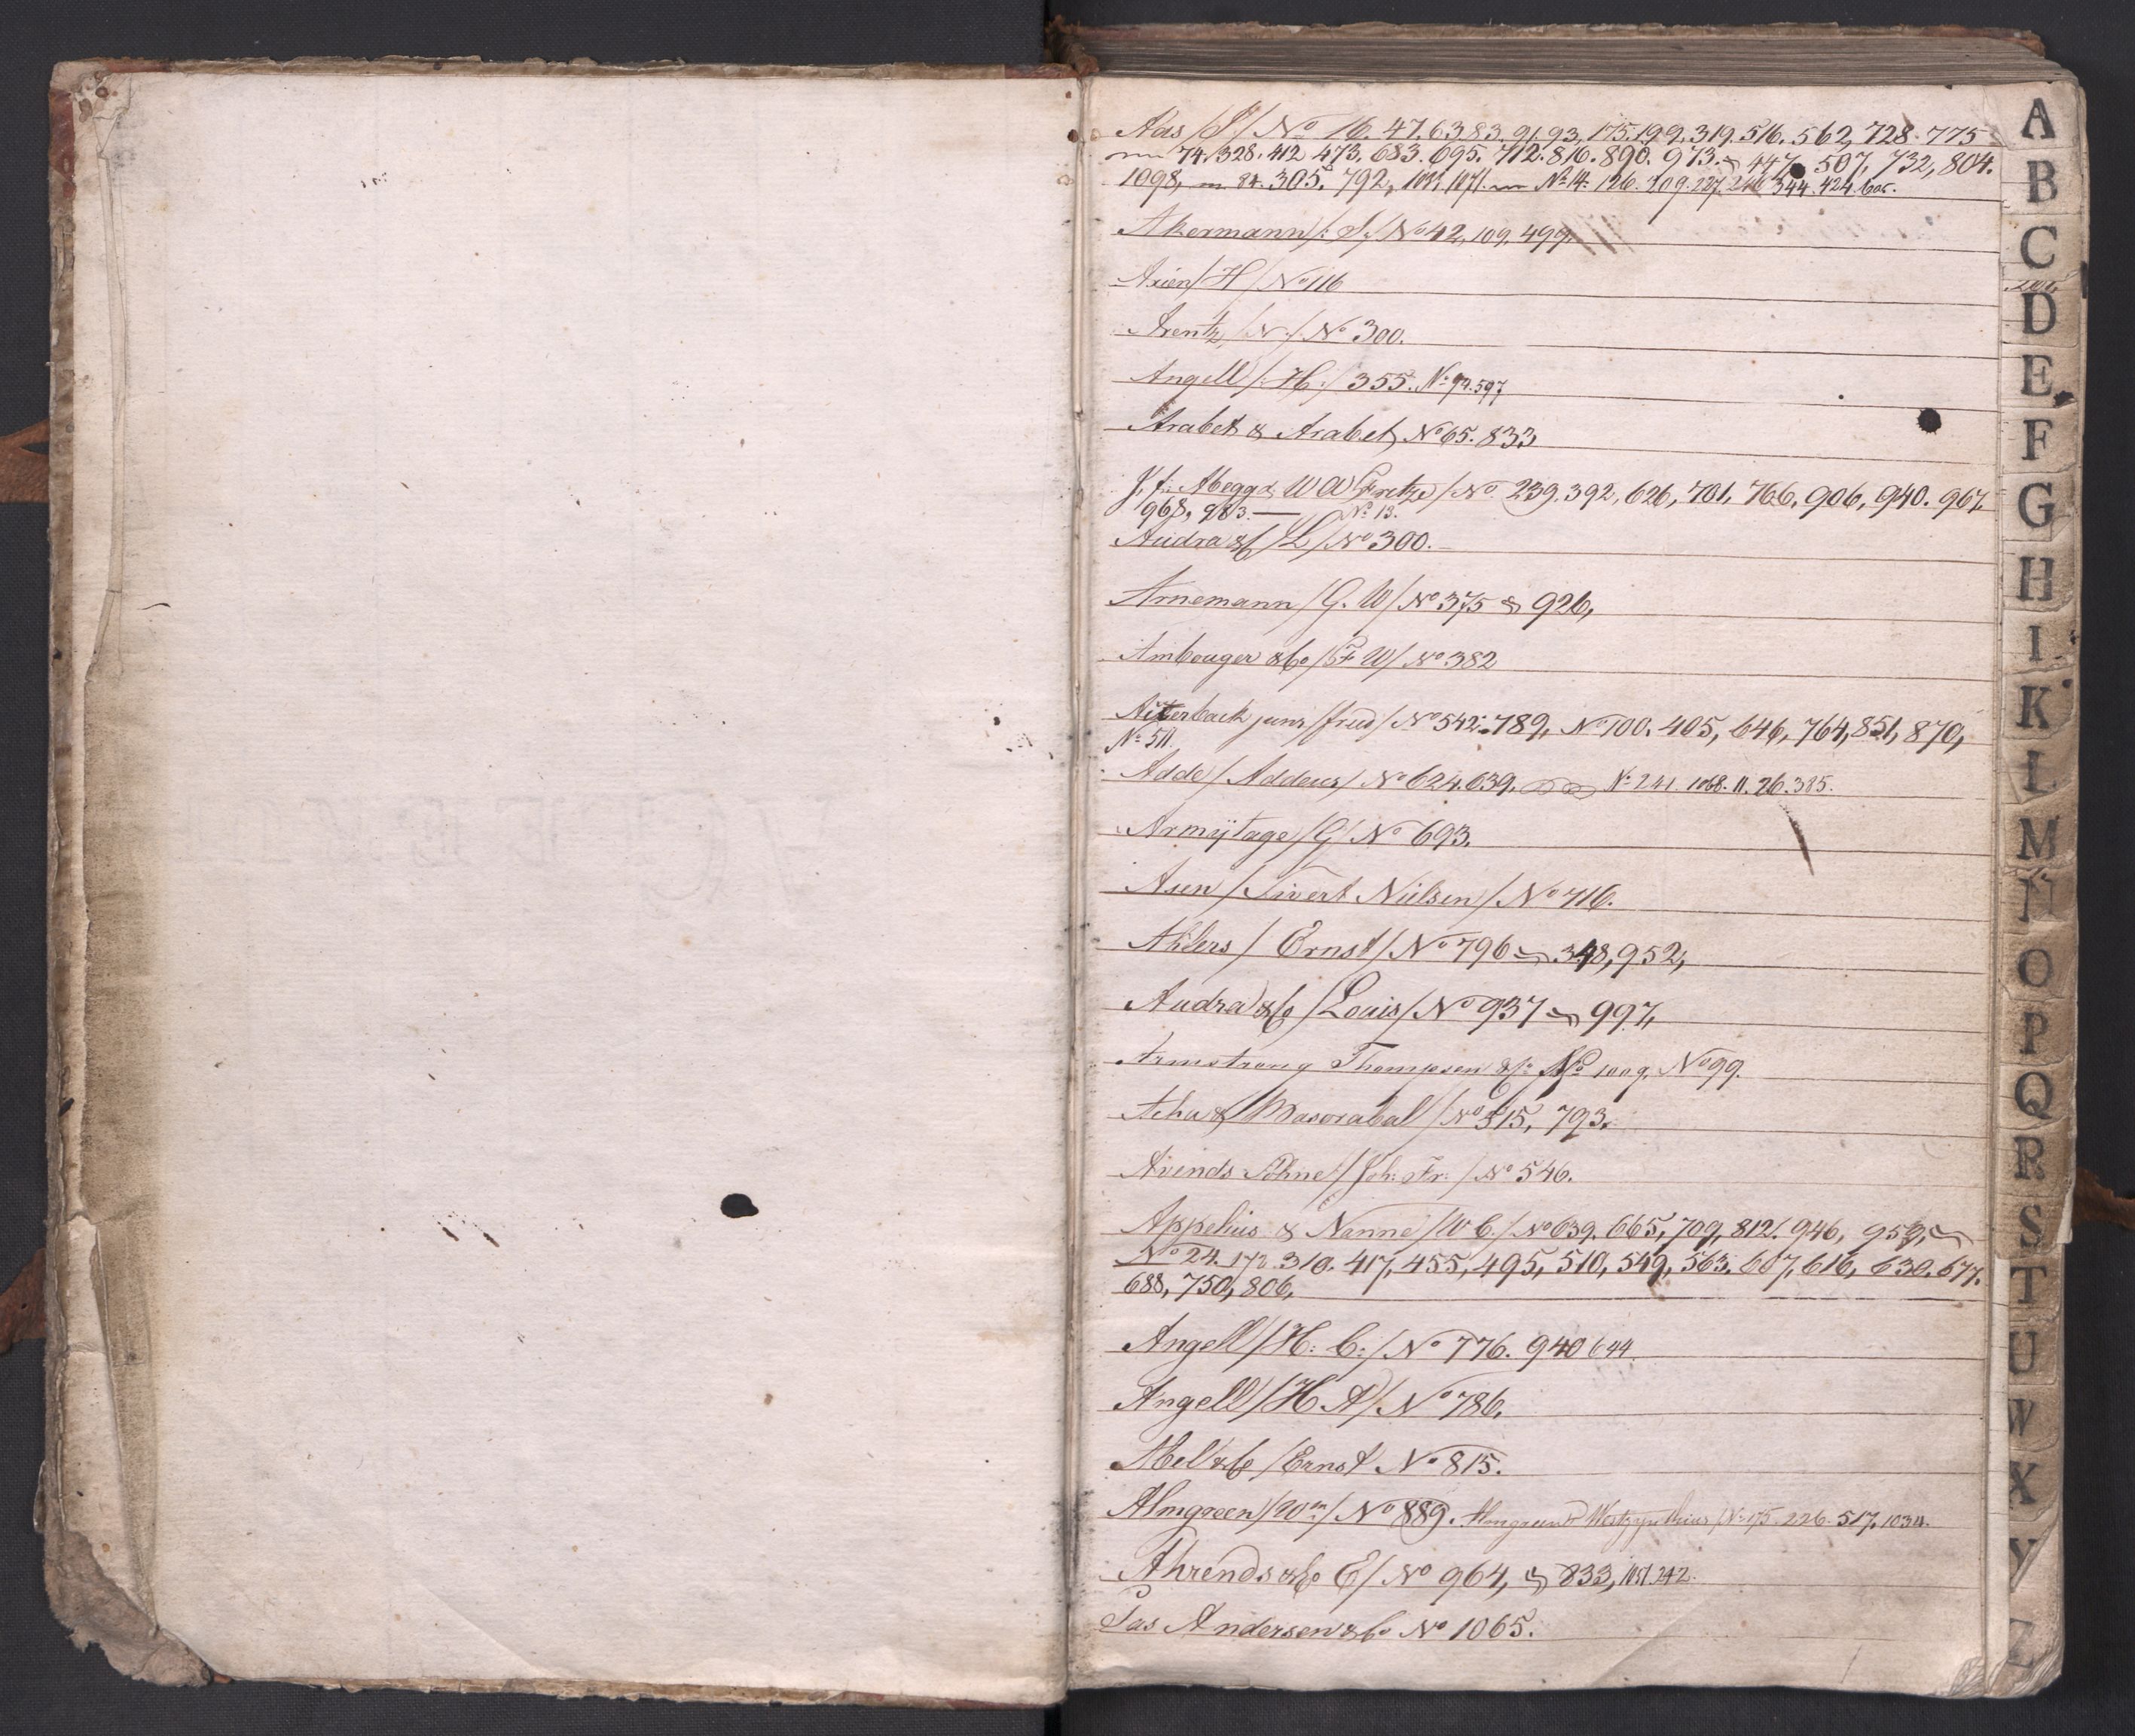 Aas /S/ No 16. 47. 63 83. 91. 93, 175. 199. 319. 516. 562, 728. 775
74. 328. 412 473. 683. 695. 712. 816. 890. 973. 447. 507, 732, 804.
1098, 84. 305. 792, 1071. No 14. 126. 209. 227. 246 344. 424. 605.
Akermann /: S:/ No 42, 109, 499.
Arien /H/ No 116
Arentz /N:/ No 300.
Angell /: H:/ 355. No 94. 597
Arabet & Arabet, No 65. 833
J. f. Abegg & W W Fretze / No 239. 392, 626, 701, 766. 906, 940. 967.
968, 983. — No 13.
Audra & C /L/ No 300.
Arnemann /G. W/ No 375 & 926,
Ambouger & Co /F W/ No 382
Aüterback junr /fried/ No 542. 789, No 100. 405, 646, 764, 851, 870,
No 511.
Adde / Addeus/ No 624. 639. No 241. 1068. 11. 26. 385.
Armÿtage /G/ No 693.
Asen /Sivert Nielsen/ No 716.
Ahlers / Ernst/ No 796 348, 952,
Audra & Co /Louis/ No 937 997,
Armstrong Thompsen & Co No 1009. No 99.
Acha & Basorabal / No 515, 793.
Arends Söhne /Joh: Fr: / No 546.
Appelius & Nanne /W C./ No 639. 665, 709, 812. 946, 953,
No 24. 172. 310. 417, 455, 495, 510, 549, 563. 607, 616, 630. 677.
688, 750, 806,
Angell /H: C:/ No 776. 940 644
Angell /H A/ No 786.
Abel & Co /Ernst No 815.
Almgreen /Wm/ No 889. Almgreen & Westzynthius /No 175. 226. 517, 1034.
Ahrends & Co E/ No 964, 833, 1051. 242.
Jas Andersen & Co No 1065.
A
B
C
D
E
F
G
H
I
K
L
M
N
O
P
Q
R
S
T
U
W
X
Y
Z